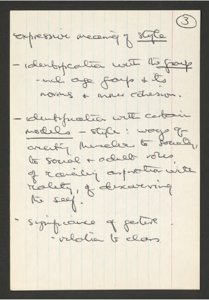 3
expressive meaning of style
- identification with the group
- with age group & its
norms & inner cohesion.
- identification with certain
models - style: ways of
orienting themselves to society,
to social & adult roles
of reconciling aspiration with
reality, of discovering
the self.
- significance of gesture
- relation to class